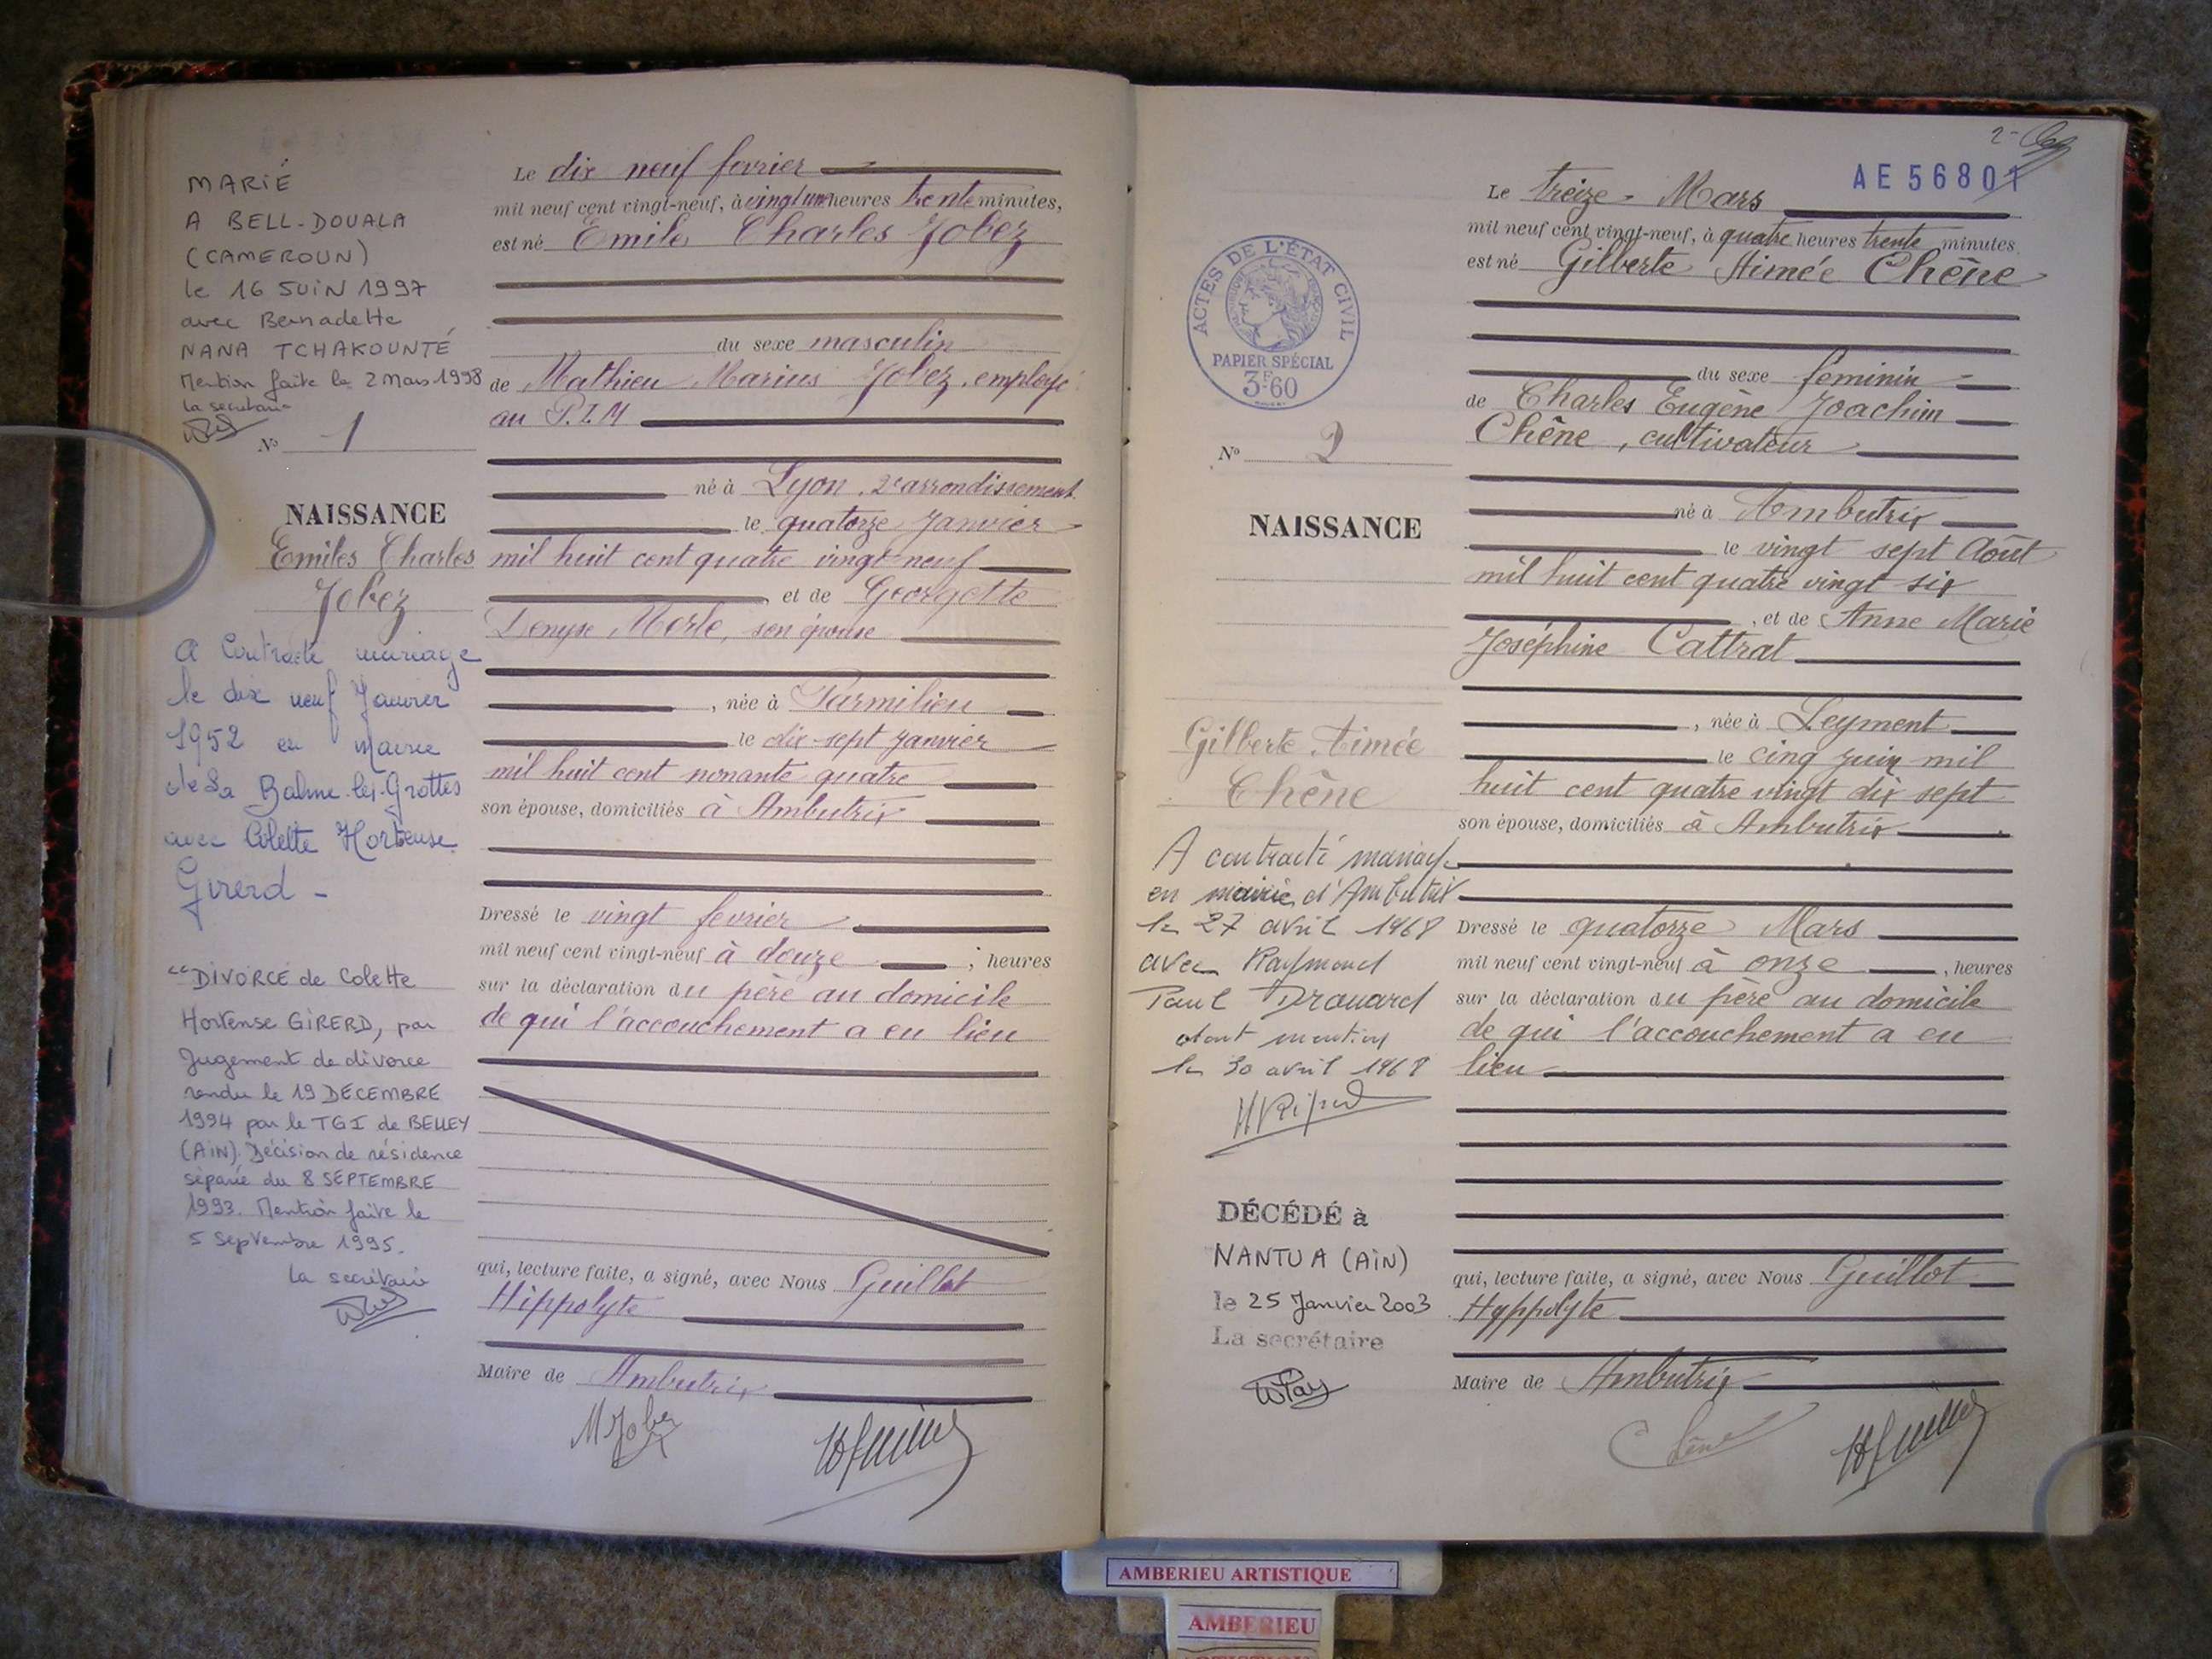 MARIÉ
A BELL-DOUALA
(CAMEROUN)
le 16 JUIN 1997
avec Bernadette
NANA TCHAKOUNTÉ
Mention faite le 2 Mars 1998
la secrétaire
N° 1
NAISSANCE
Emiles Charles
Jobez
A Contracté mariage
le dix neuf Janvier
1952 en Mairie
de La Balme-les-Grottes
avec Colette Hortense
Girerd -
"DIVORCÉ de Colette
Hortense GIRERD, par
Jugement de divorce
rendu le 19 DECEMBRE
1994 par le TGI de BELLEY
(AIN). Décision de résidence
séparée du 8 SEPTEMBRE
1993. Mention faite le
5 Septembre 1995.
La secrétaire
Le dix neuf fevrier
mil neuf cent vingt-neuf, à vingt une heures trente minutes,
est né Emile Charles Jobez
du sexe masculin
de Mathieu Marius Jobez, employé
au P.L.M
né à Lyon, 2e arrondissement
le quatorze Janvier
mil huit cent quatre vingt neuf
, et de Georgette
Denyse Merle, son épouse
, née à Parmilieu
le dix-sept Janvier
mil huit cent nonante quatre
son épouse, domiciliés à Ambutrix
Dressé le vingt fevrier
mil neuf cent vingt-neuf à douze ; heures
sur la déclaration du père au domicile
de qui l'accouchement a eu lieu
qui, lecture faite, a signé, avec Nous Guillot
Hippolyte
Maire de Ambutrix
M Jobez
2-
AE 56801
ACTES DE L'ÉTAT CIVIL
PAPIER SPÉCIAL
3F60
N° 2
NAISSANCE
Gilberte Aimée
Chêne
A contracté mariage
en mairie d'Ambutrix
le 27 avril 1968
avec Raymond
Paul Drouard
dont mention
le 30 avril 1968
DÉCÉDÉ à
NANTUA (AIN)
le 25 Janvier 2003
La secrétaire
Le treize Mars
mil neuf cent vingt-neuf, à quatre heures trente minutes
est né Gilberte Aimée Chêne
du sexe feminin
de Charles Eugène Joachim
Chêne, cultivateur
né à Ambutrix
le vingt sept Août
mil huit cent quatre vingt six
, et de Anne Marie
Joséphine Cattrat
, née à Leyment
le cinq juin mil
huit cent quatre vingt dix sept
son épouse, domiciliés à Ambutrix
Dressé le quatorze Mars
mil neuf cent vingt-neuf à onze , heures
sur la déclaration du père au domicile
de qui l'accouchement a eu
lieu
qui, lecture faite, a signé, avec Nous Guillot
Hyppolyte
Maire de Ambutrix
Chêne
AMBERIEU ARTISTIQUE
AMBERIEU